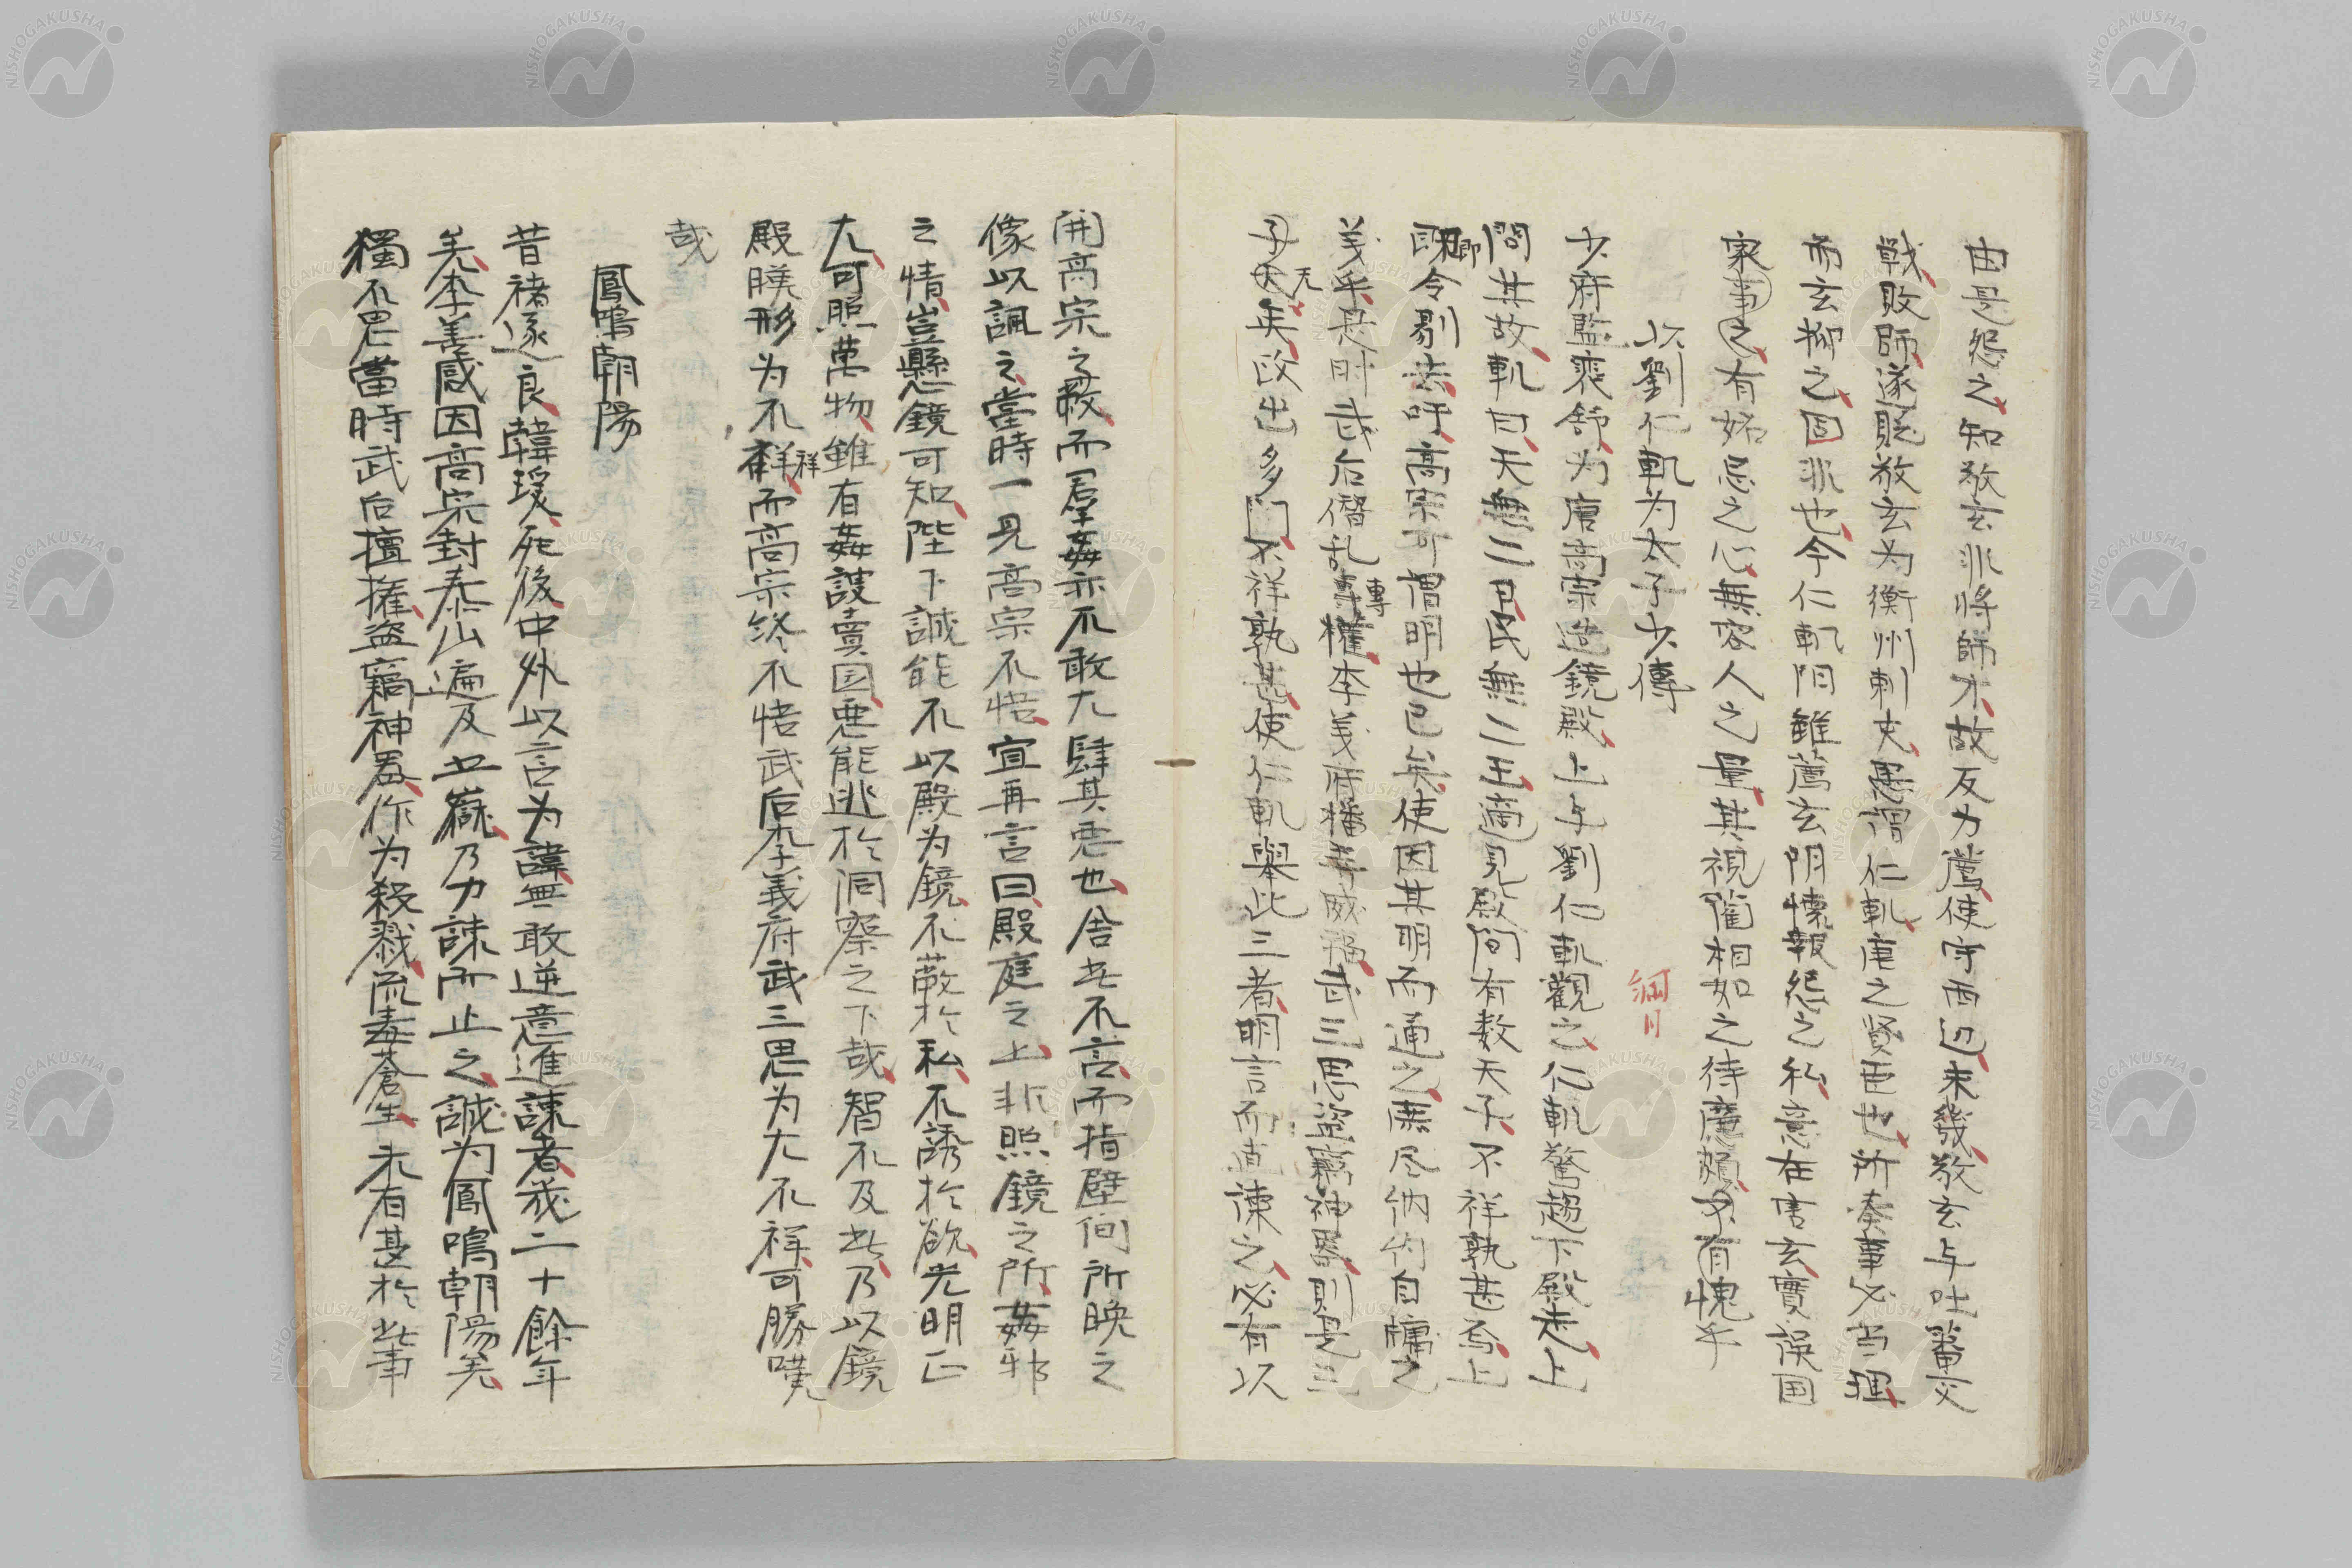 由是怨之知敬玄非将師才故反力薦使守西辺未幾敬玄与吐蕃交
戦敗師遂貶敬玄为衡州刺史愚謂仁軌唐之賢臣也所奏事必当理
而玄抑之固非也今仁軌阳雖薦玄阴懐報怨之私意在害玄實誤国
家事之有妬忌之心無容人之量其視藺相如之待廉頗不有愧乎
以劉仁軌为太子少傳
綱月
少府監裴舒为唐高宗造鏡殿上与劉仁軌觀之仁軌驚趨下殿走上
問其故軌曰天無二日民無二王適見殿间有数天子不祥孰甚焉上
既卽令剔去吁高宗可謂明也已矣使因其明而通之庶尽納约自牖之
義乎是时武后僭乱専專權李義府播弄威福武三思盗竊神器則是三
子天矣政出多门不祥孰甚使仁軌舉此三者明言而直諫之必有以
開高宗之蔽而羣姦亦不敢大肆其悪也舎此不言而指壁间所映之
像以諷之當時一見高宗不悟宜再言曰殿庭之上非照鏡之所姦邪
之情豈懸鏡可知陛下誠能不以殿为鏡不蔽於私不誘於欲光明正
大可照萬物雖有姦諛賣国悪能逃於洞察之下哉智不及此乃以鏡
殿膜形为不祥而高宗終不悟武后李義府武三思为大不祥可勝嘆
哉
鳳鳴朝陽
昔褚遂良韓瑗死後中外以言为諱無敢逆意進諫者幾二十餘年
羌李善感因高宗封泰山遍及五嶽乃力諫而止之誠为鳳鳴朝陽羌
獨不思當時武后擅權盗竊神器作为殺戮流毒蒼生未有甚於此事